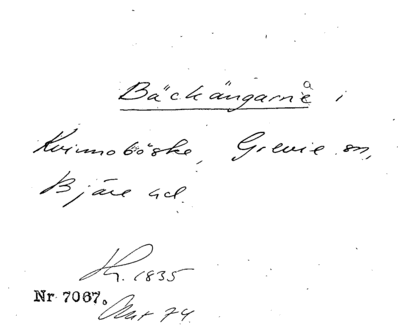 Bäckängarna i
Kvinnoböske, Grevie sn,
Bjäre hd.
Kr. 1835
Nr 7067. Akt 74